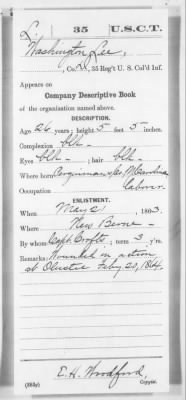 L. 35 U.S.C.T.
Washington Lee,
, Co. , 35 Reg't U. S. Col'd Inf.
Appears on
Company Descriptive Book
of the organization named above.
DESCRIPTION.
Age 26 years; height 5 feet 5 inches.
Complexion blk
Eyes blk ; hair blk
Where born Perquimans Co, N. Carolina
Occupation laborer
ENLISTMENT.
When May 2 , 1863.
Where New Berne
By whom Capt. Crofts ; term 3 y'rs.
Remarks: Wounded in action
at Olustee Feby 20, 1864.
E. H. Woodford,
(383g) Copyist.